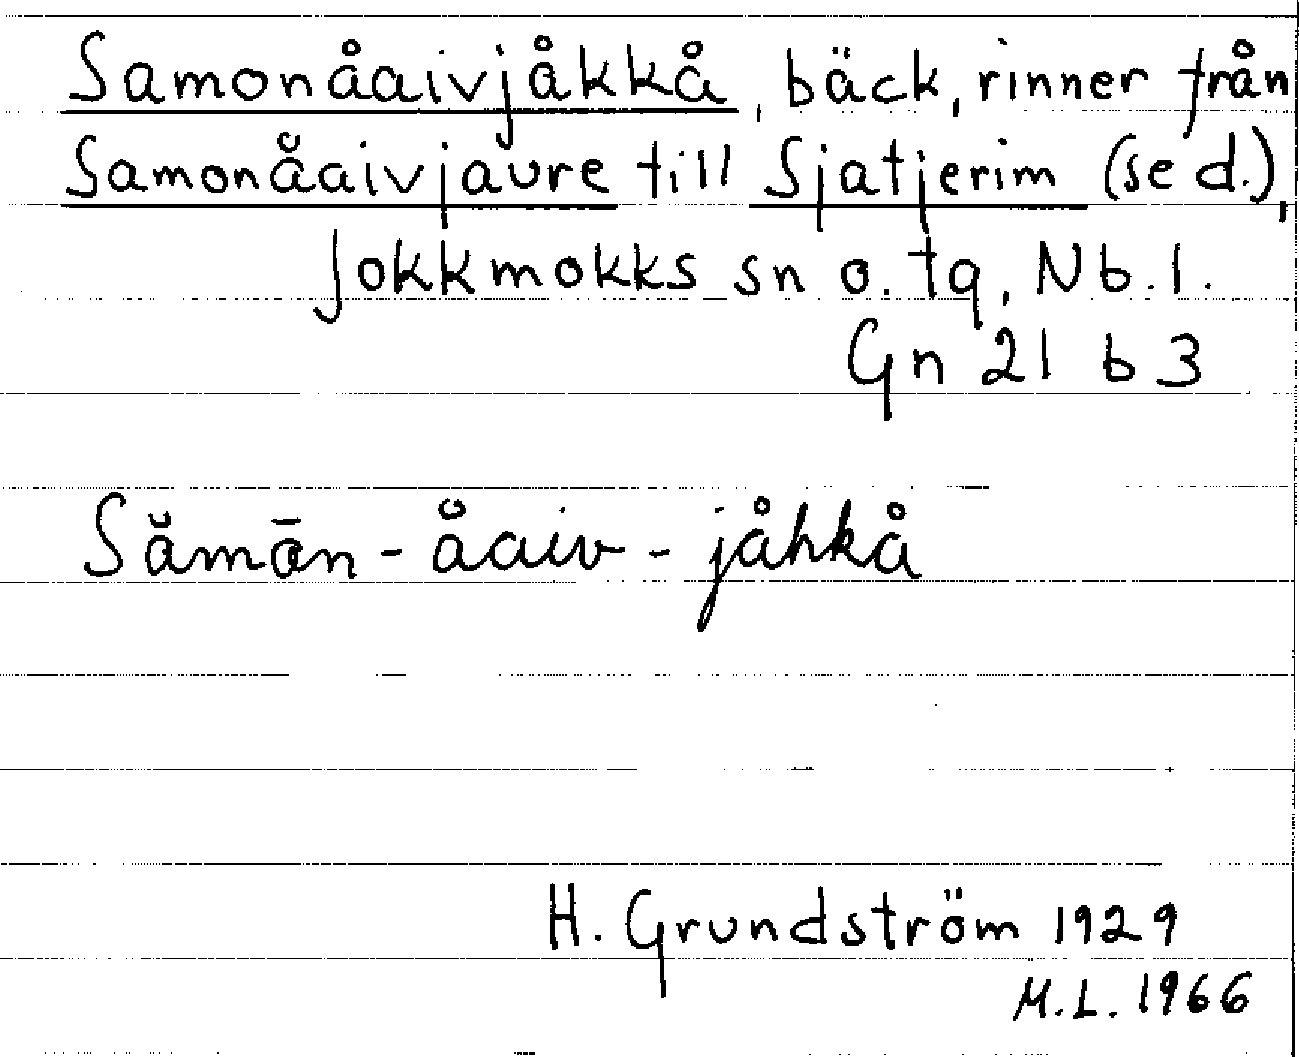 Samonåaivjåkkå, bäck, rinner från
Samonåaivjaure till Sjatjerim (se d.),
Jokkmokks sn o. tg, Nb. l.
Gn 21 b 3
Sămōn - åaiv - jåhkå
H. Grundström 1929
M.L. 1966